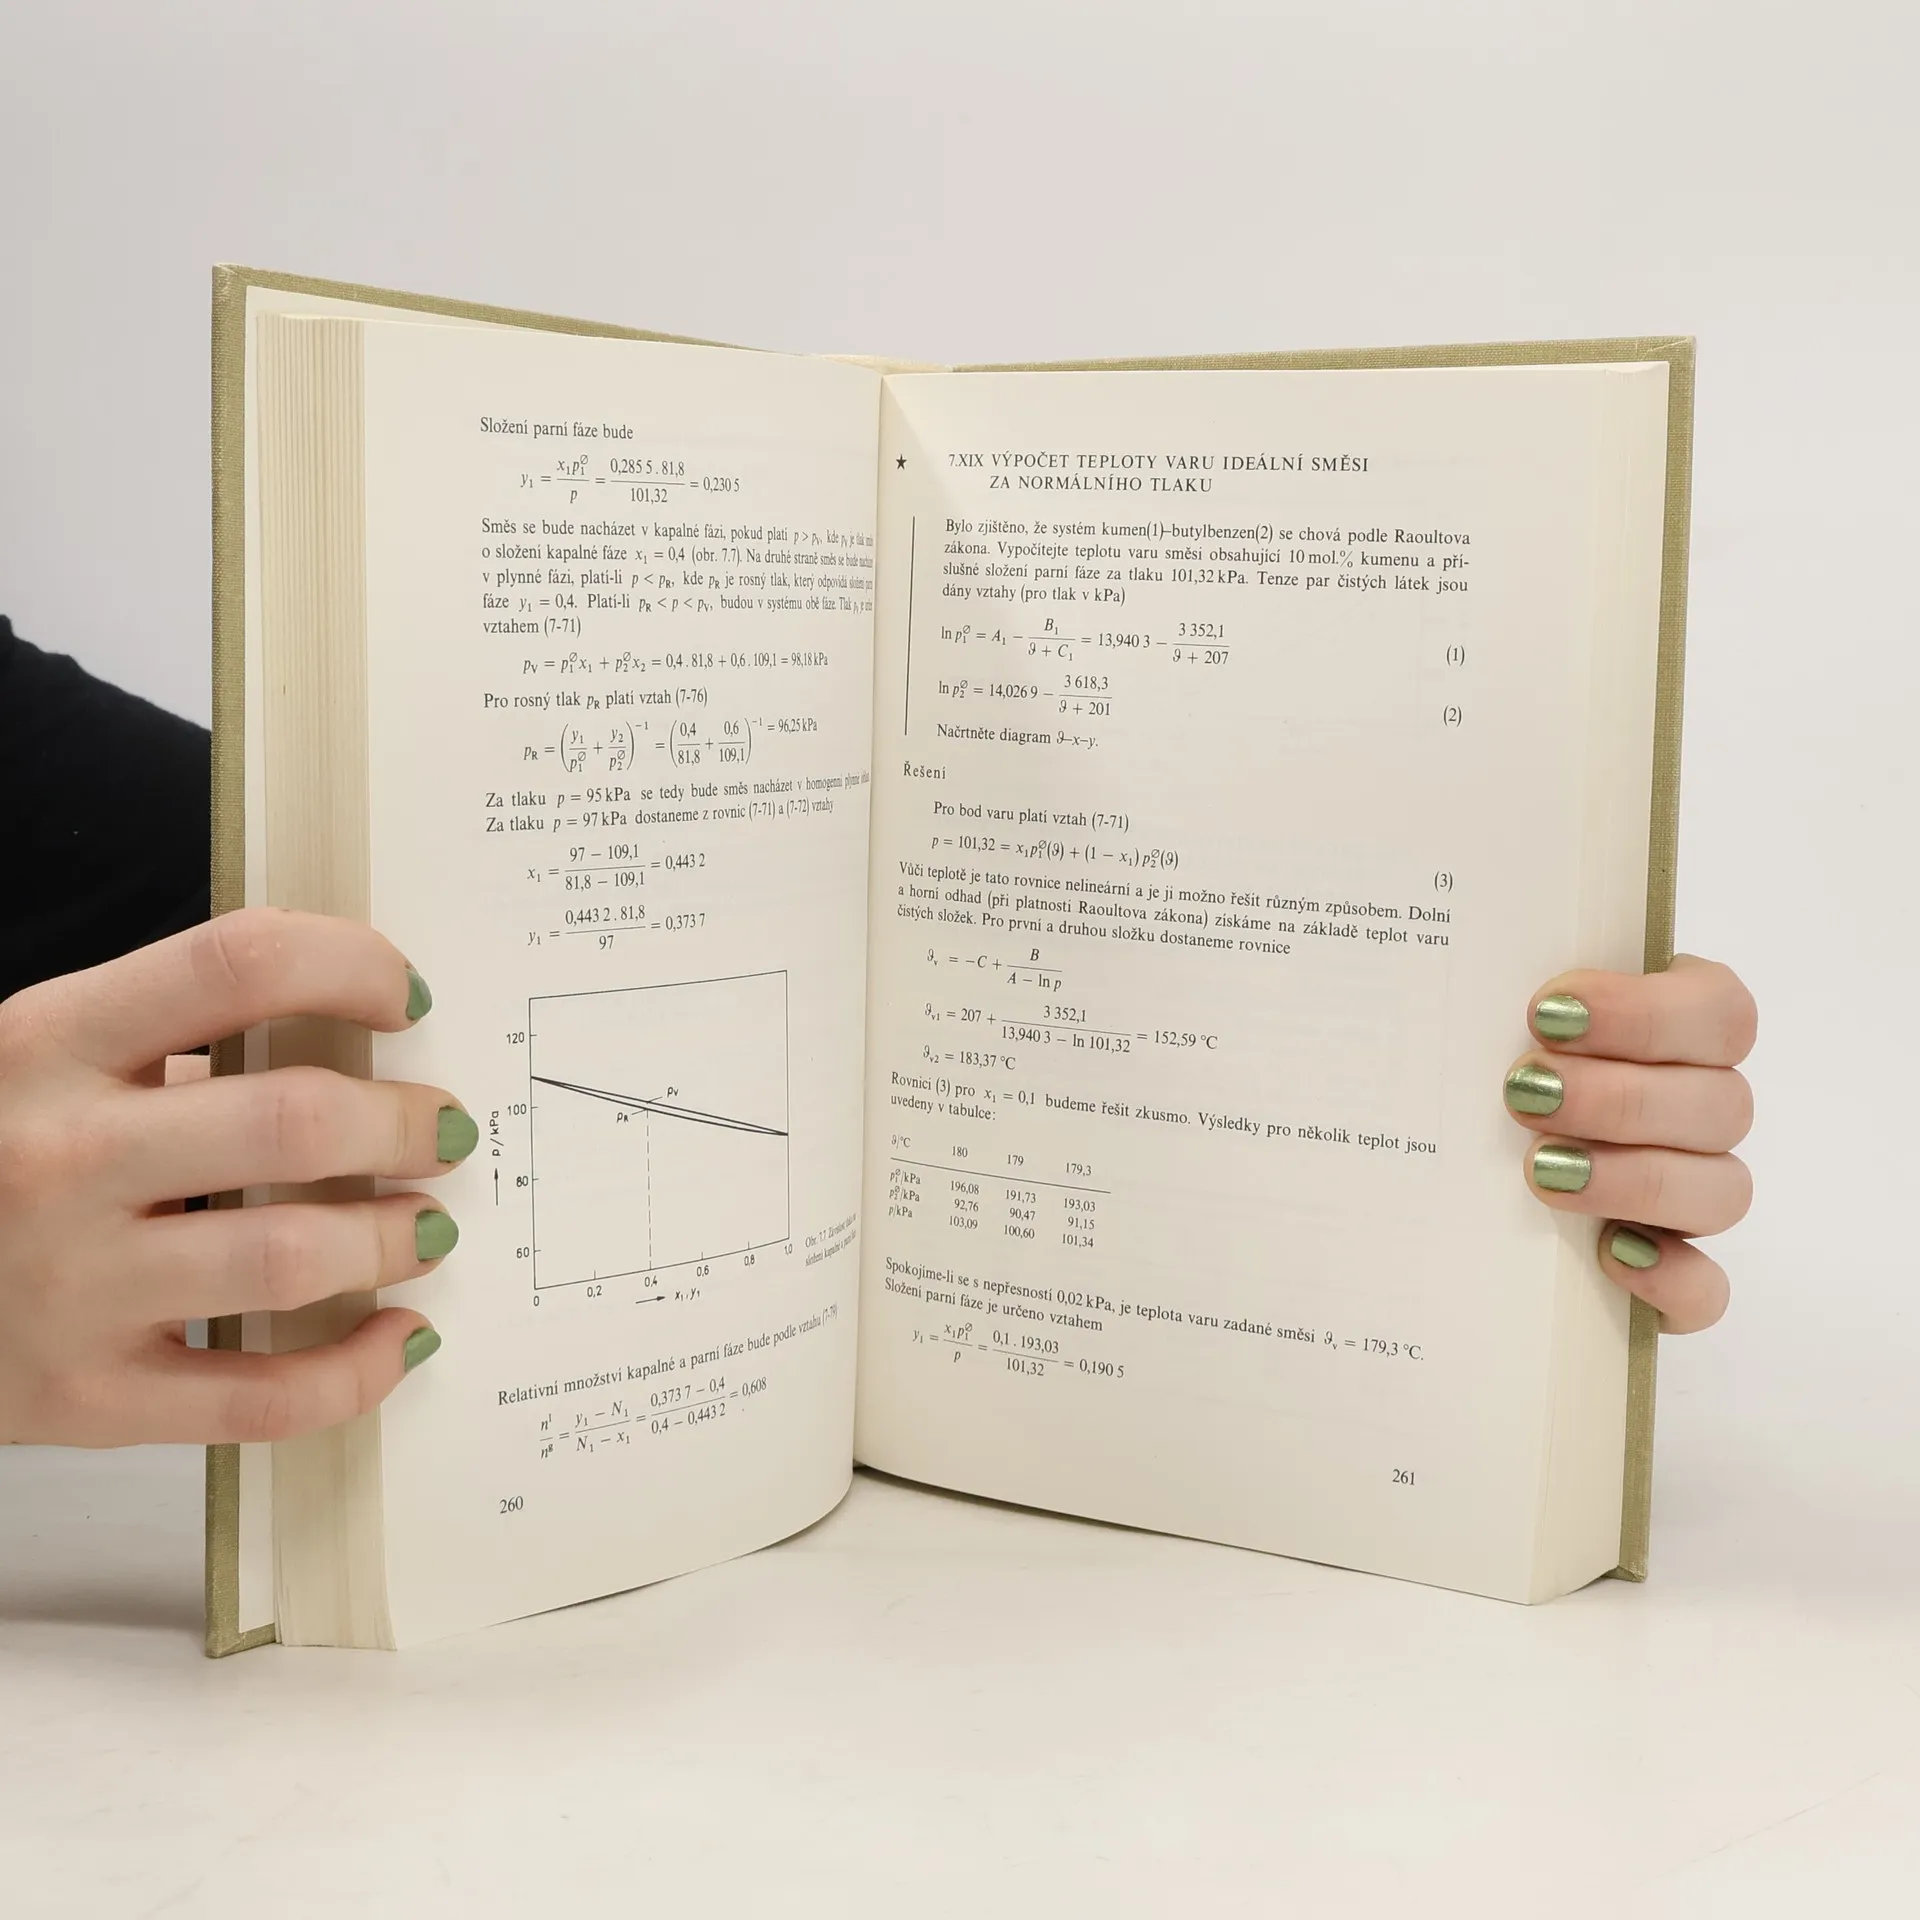 Složení parní fáze bude
y₁ = x₁p₁^∅ / p = 0,285 5 . 81,8 / 101,32 = 0,230 5
Směs se bude nacházet v kapalné fázi, pokud platí p > pᵥ, kde pᵥ je tlak
o složení kapalné fáze x₁ = 0,4 (obr. 7.7). Na druhé straně směs se bude
v plynné fázi, platí-li p < p_R, kde p_R je rosný tlak, který odpovídá složení
fáze y₁ = 0,4. Platí-li p_R < p < pᵥ, budou v systému obě fáze. Tlak pᵥ je
vztahem (7-71)
pᵥ = p₁^∅x₁ + p₂^∅x₂ = 0,4 . 81,8 + 0,6 . 109,1 = 98,18 kPa
Pro rosný tlak p_R platí vztah (7-76)
p_R = (y₁/p₁^∅ + y₂/p₂^∅)⁻¹ = (0,4/81,8 + 0,6/109,1)⁻¹ = 96,25 kPa
Za tlaku p = 95 kPa se tedy bude směs nacházet v homogenní plynné
Za tlaku p = 97 kPa dostaneme z rovnic (7-71) a (7-72) vztahy
x₁ = 97 − 109,1 / 81,8 − 109,1 = 0,443 2
y₁ = 0,443 2 . 81,8 / 97 = 0,373 7
120
100
80
60
p / kPa
pᵥ
p_R
0 0,2 0,4 0,6 0,8 1,0
x₁, y₁
Obr. 7.7
složení kapalné a parní
Relativní množství kapalné a parní fáze bude podle vztahu (7-79)
nˡ/nᵍ = y₁ − N₁ / N₁ − x₁ = 0,373 7 − 0,4 / 0,4 − 0,443 2 = 0,608
260
★ 7.XIX VÝPOČET TEPLOTY VARU IDEÁLNÍ SMĚSI
ZA NORMÁLNÍHO TLAKU
Bylo zjištěno, že systém kumen(1)–butylbenzen(2) se chová podle Raoultova
zákona. Vypočítejte teplotu varu směsi obsahující 10 mol.% kumenu a pří-
slušné složení parní fáze za tlaku 101,32 kPa. Tenze par čistých látek jsou
dány vztahy (pro tlak v kPa)
ln p₁^∅ = A₁ − B₁ / ϑ + C₁ = 13,940 3 − 3 352,1 / ϑ + 207 (1)
ln p₂^∅ = 14,026 9 − 3 618,3 / ϑ + 201 (2)
Načrtněte diagram ϑ–x–y.
Řešení
Pro bod varu platí vztah (7-71)
p = 101,32 = x₁p₁^∅(ϑ) + (1 − x₁) p₂^∅(ϑ) (3)
Vůči teplotě je tato rovnice nelineární a je ji možno řešit různým způsobem. Dolní
a horní odhad (při platnosti Raoultova zákona) získáme na základě teplot varu
čistých složek. Pro první a druhou složku dostaneme rovnice
ϑᵥ = −C + B / A − ln p
ϑᵥ₁ = 207 + 3 352,1 / 13,940 3 − ln 101,32 = 152,59 °C
ϑᵥ₂ = 183,37 °C
Rovnici (3) pro x₁ = 0,1 budeme řešit zkusmo. Výsledky pro několik teplot jsou
uvedeny v tabulce:
ϑ/°C 180 179 179,3
p₁^∅/kPa 196,08 191,73 193,03
p₂^∅/kPa 92,76 90,47 91,15
p/kPa 103,09 100,60 101,34
Spokojíme-li se s nepřesností 0,02 kPa, je teplota varu zadané směsi ϑᵥ = 179,3 °C.
Složení parní fáze je určeno vztahem
y₁ = x₁p₁^∅ / p = 0,1 . 193,03 / 101,32 = 0,190 5
261